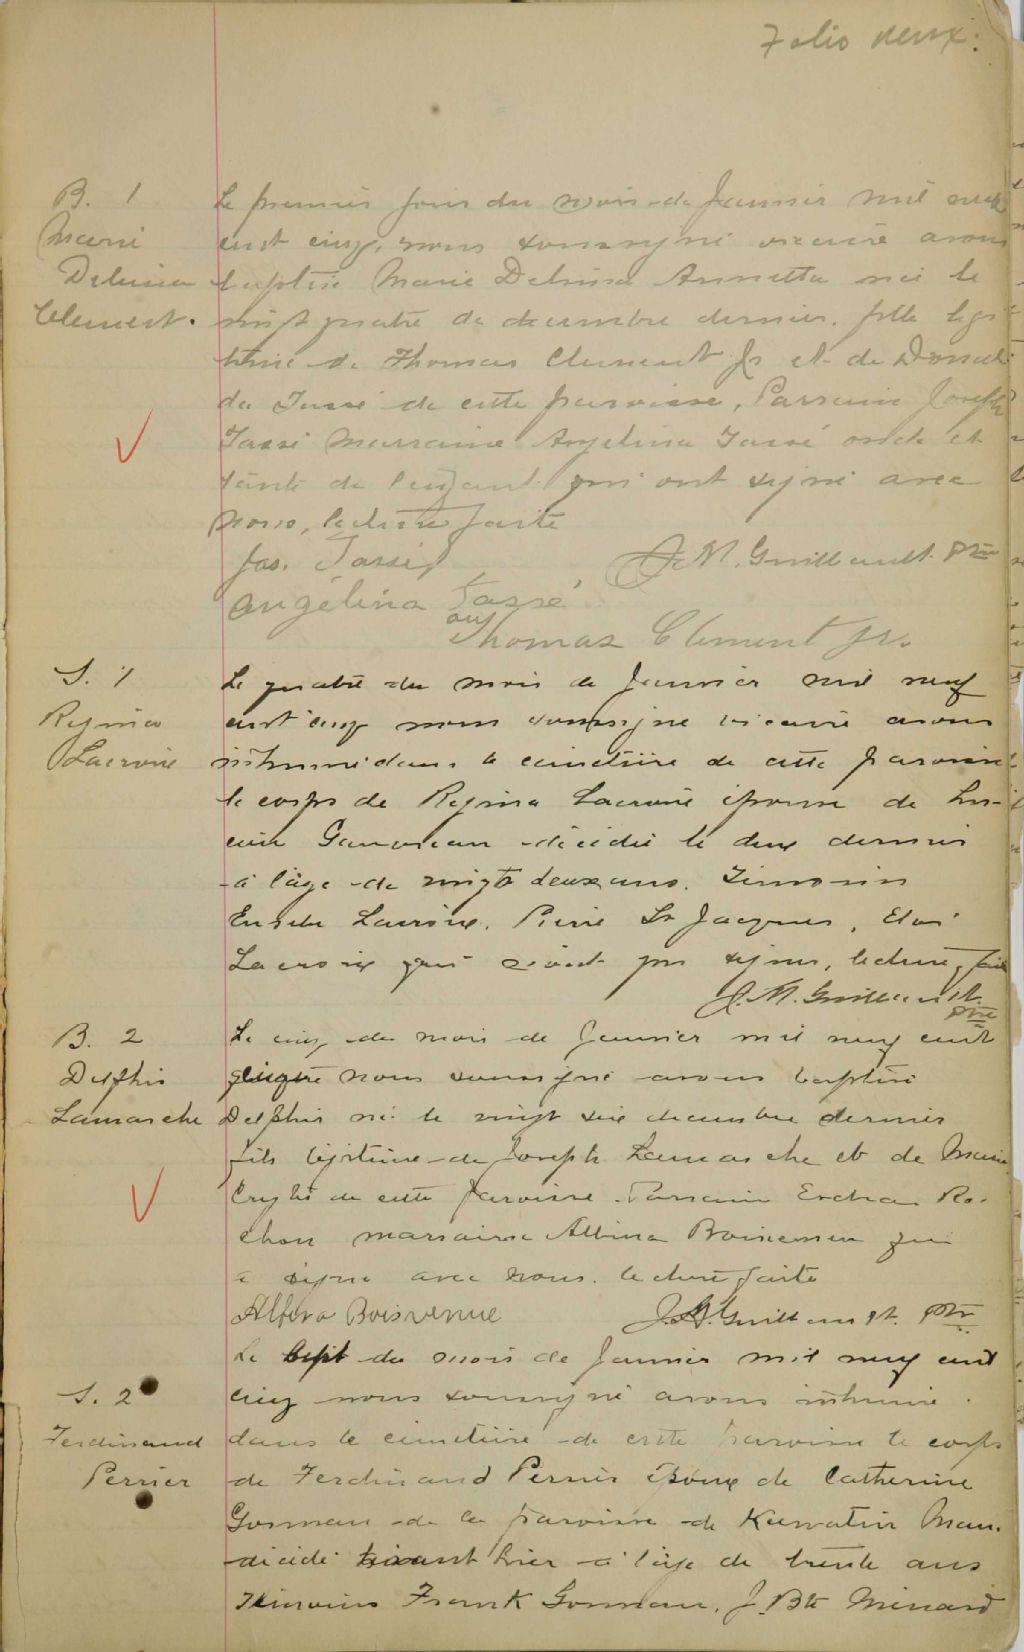 Folio deux.
B. 1
Marie
Delvina
Clement.
Le premier jour du mois de Janvier mil neuf
cent cinq, nous soussigné vicaire avons
baptisé Marie Delvina Annetta née le
vingt quatre de decembre dernier, fille légi
time de Thomas Clement Jr et de
da Tassé de cette paroisse, Parrain Joseph
Tassé Marraine Angelina Tassé oncle et
tante de l'enfant qui ont signé avec
nous, lecture faite
Jos. Tassé
J. M. Guillault. Ptre
Angélina Tassé
Thomas Clement Jr.
S. 1
Regina
Lacroix
Le quatre du mois de Janvier mil neuf
cent cinq nous soussigné vicaire avons
inhumé dans le cimetière de cette paroisse
le corps de Regina Lacroix épouse de Lu-
cien décédée le deux dernier
à l'âge de vingt deux ans. Temoin
Lacroix. Pierre St Jacques, Eloi
Lacroix qui n'ont pu signer, lecture faite
J. M. Guillault.
Ptre
B. 2
Delphis
Lamarche
Le cinq du mois de Janvier mil neuf cent
cinq nous soussigné avons baptisé
Delphis né le vingt six decembre dernier
fils légitime de Joseph Lamarche et de Marie
de cette paroisse. Parrain Ro-
chon marraine Albina Boisvenue qui
a signé avec nous. lecture faite
Albina Boisvenue
J. M. Guillault. Ptre
S. 2
Ferdinand
Perrier
Le sept du mois de Janvier mil neuf cent
cinq nous soussigné avons inhumé
dans le cimetière de cette paroisse le corps
de Ferdinand Perrier époux de Catherine
Gorman de la paroisse de Keewatin Man.
décédé avant hier à l'âge de trente ans
Témoins Frank Gorman, J. Bte Menard